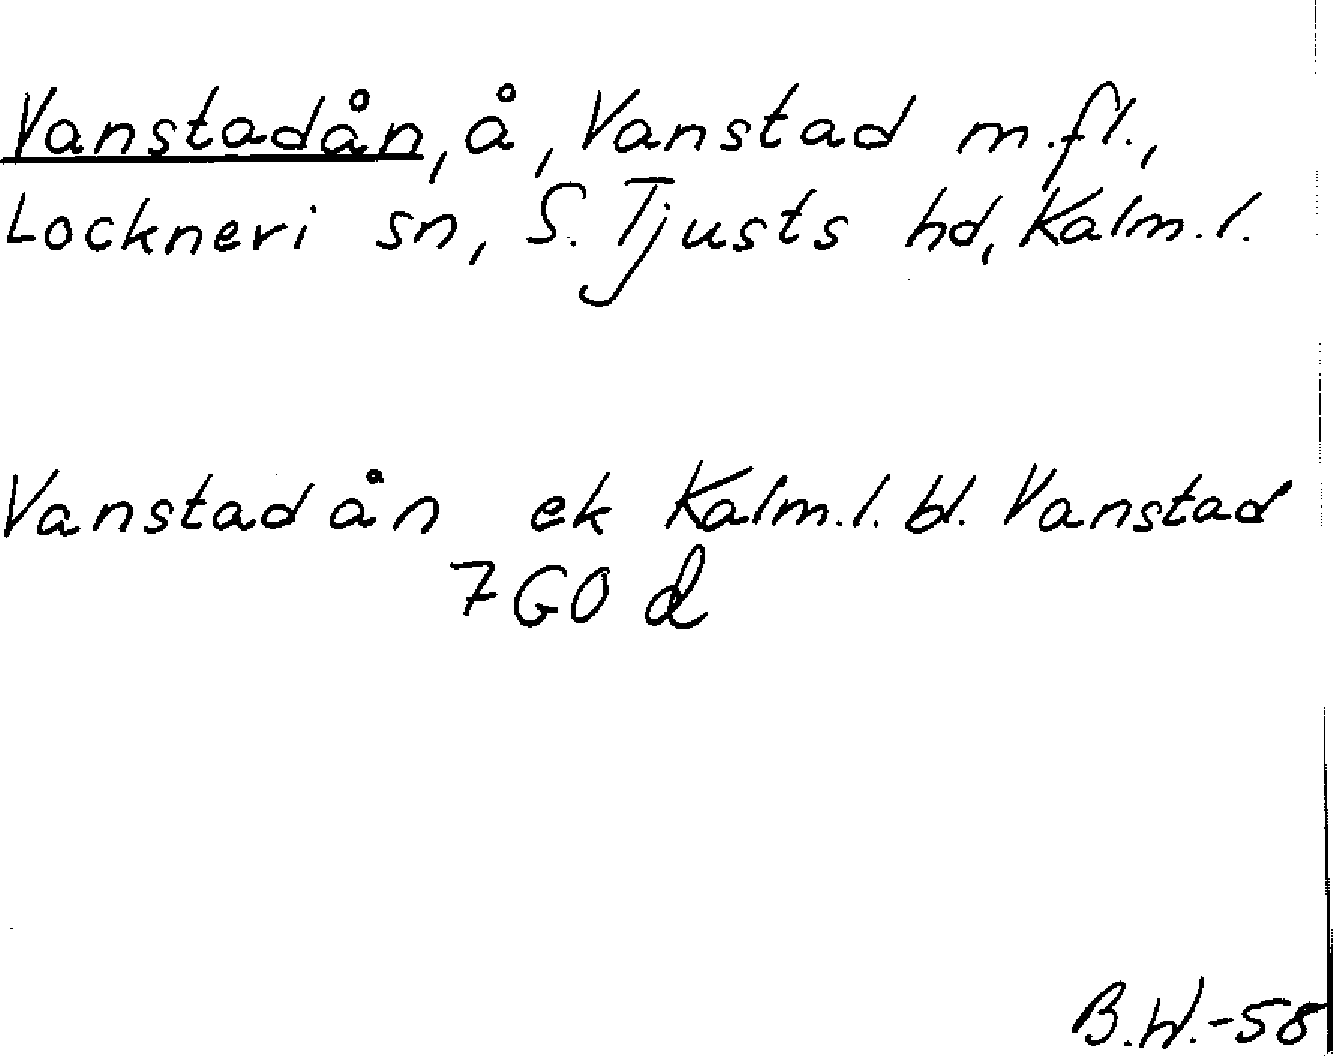 Vanstadån, å, Vanstad m.fl.,
Lockneri sn, S. Tjusts hd, Kalm.l.
Vanstadån ek Kalm.l. bl. Vanstad
7 GO d
B.W.-58